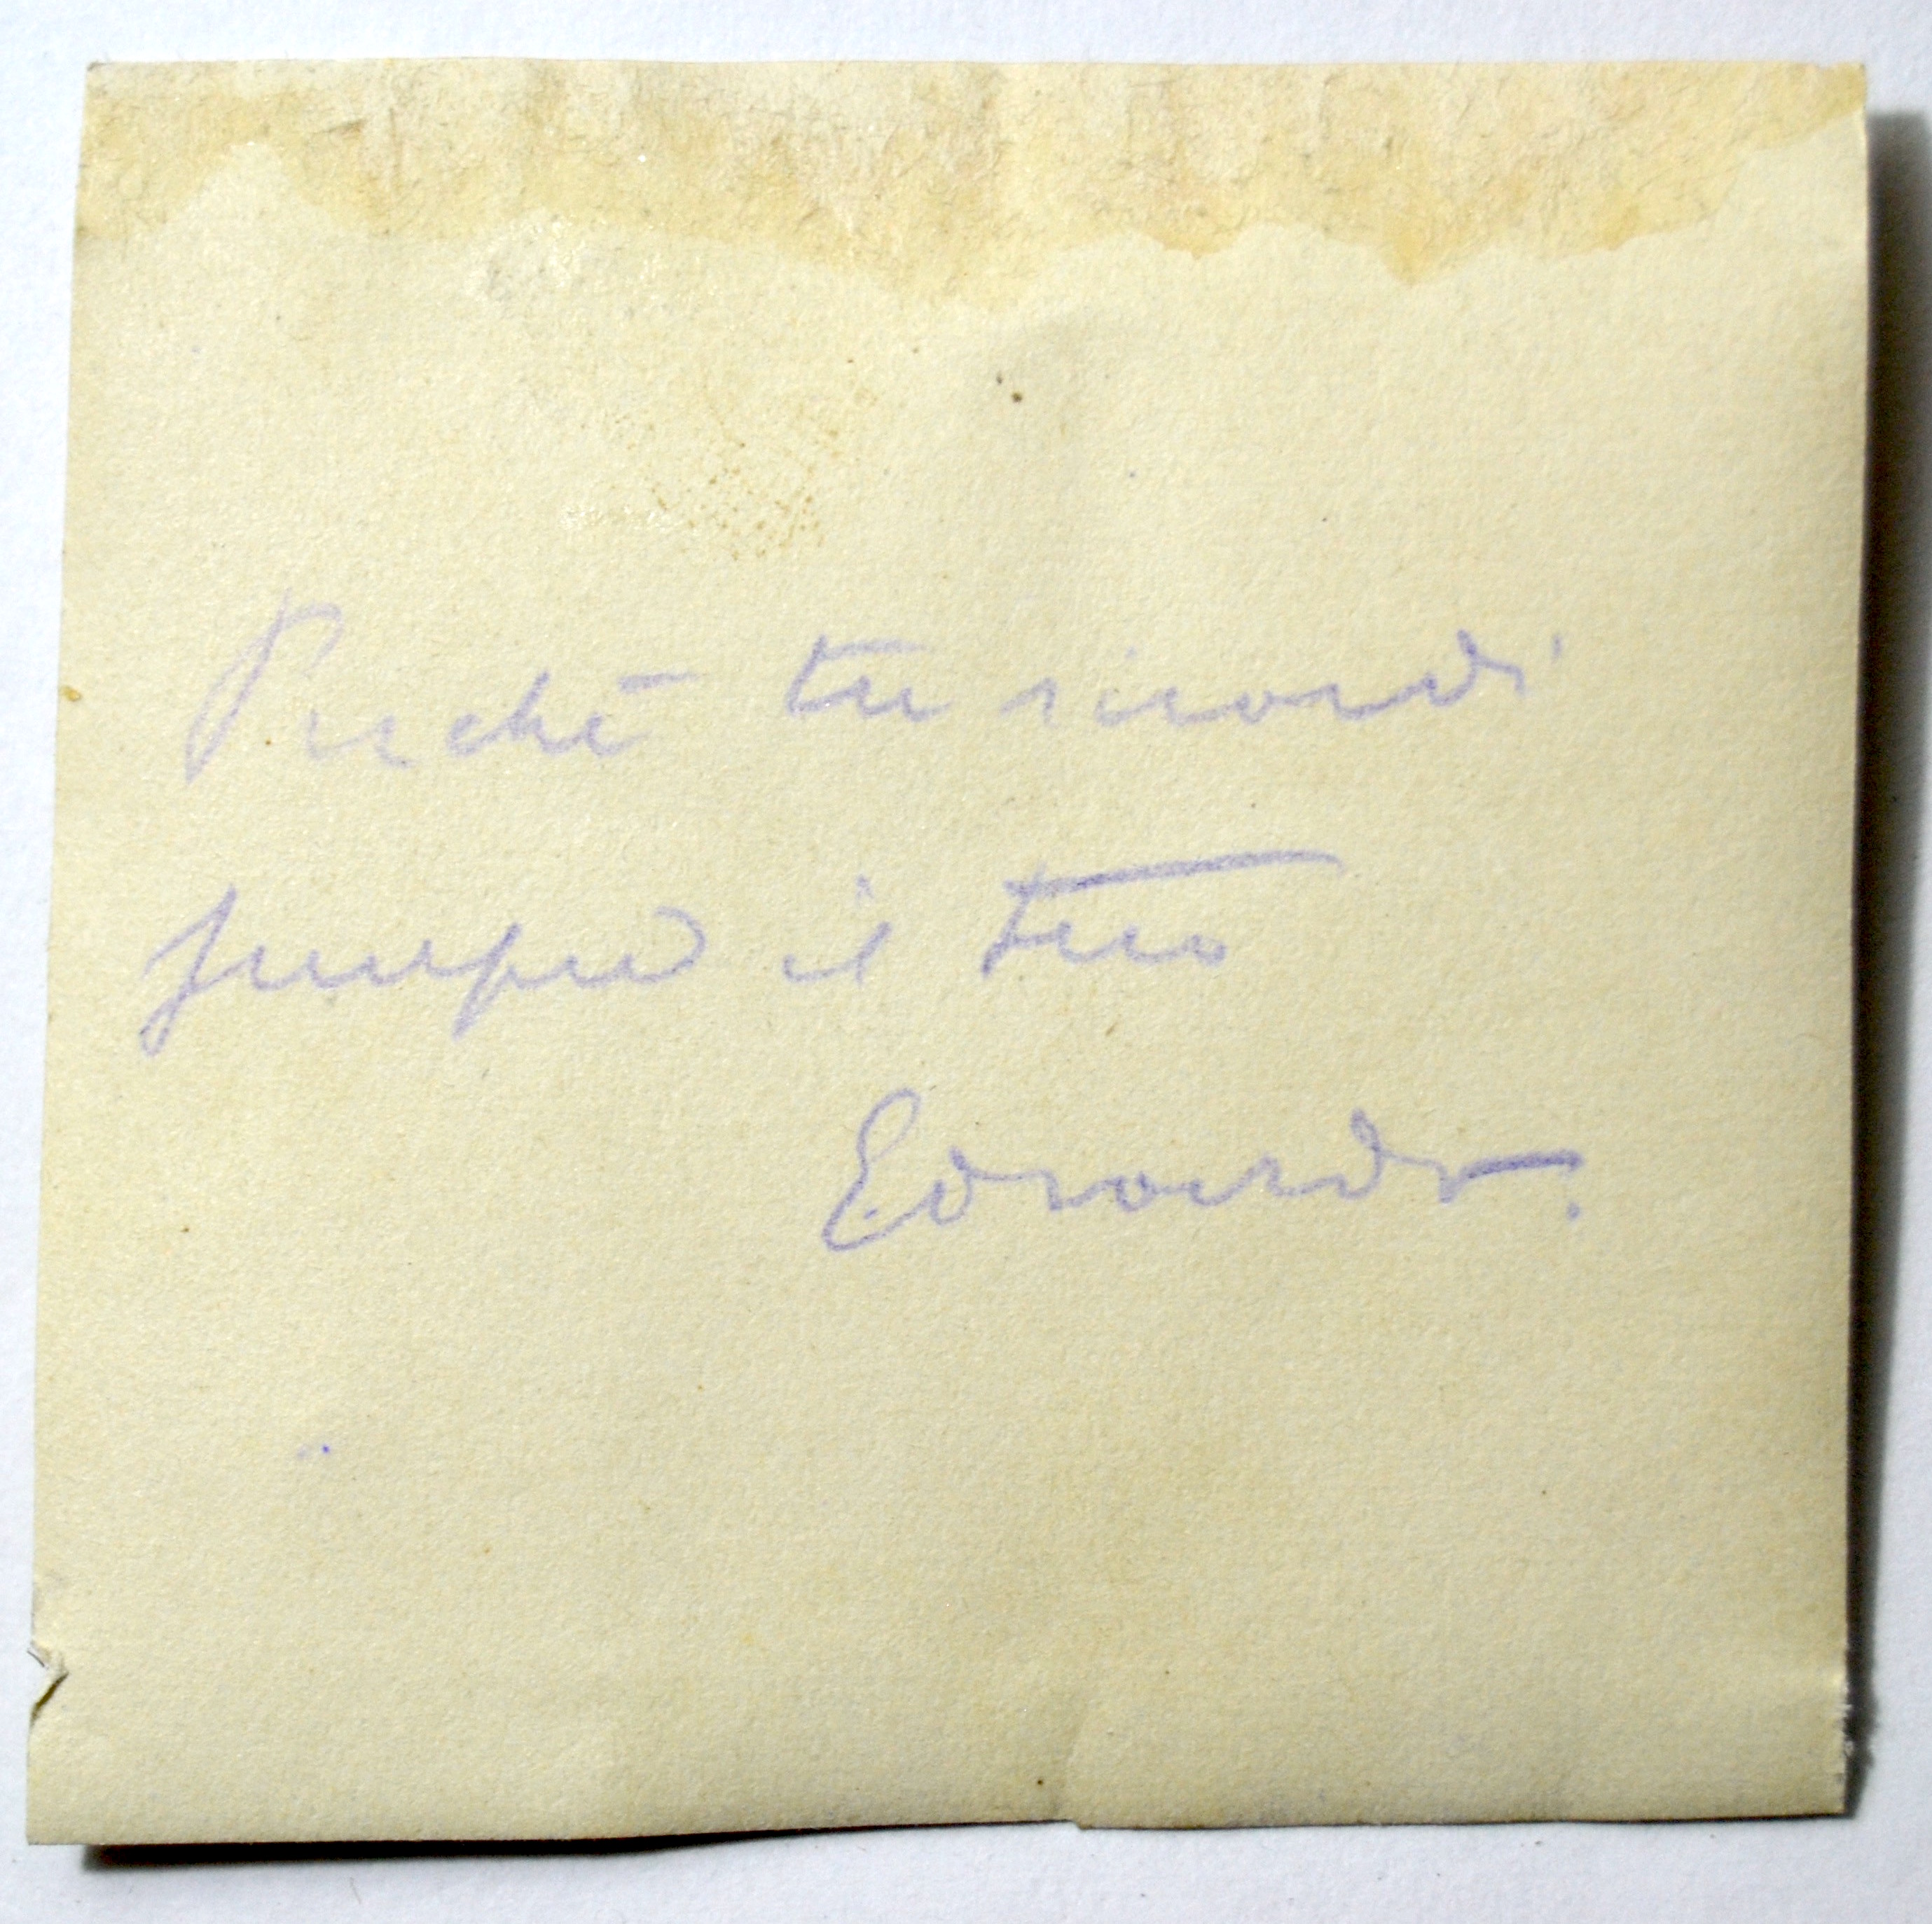 Perché tu ricordi
sempre il tuo
Edoardo.